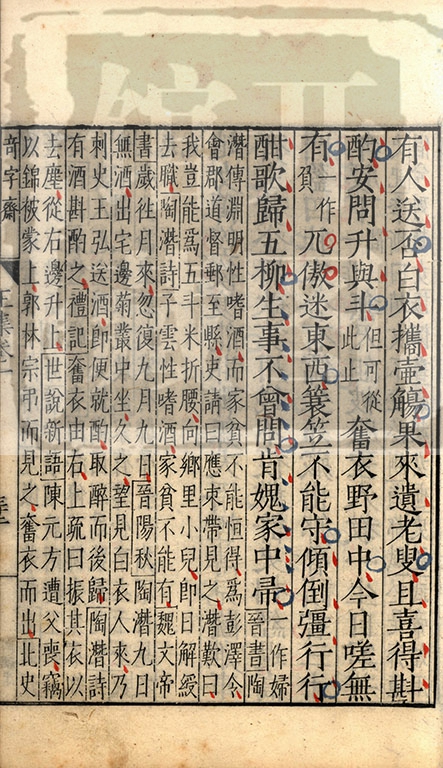 有人送否白衣攜壺觴果來遺老叟且喜得斟
酌安問升與斗但可從此止奮衣野田中今日嗟無
有一作負兀傲迷東西蓑笠不能守傾倒彊行行
酣歌歸五柳生事不曾問肯媿家中帚一作婦晉書陶
潛傳淵明性嗜酒而家貧不能恒得爲彭澤令
會郡道督郵至縣吏請曰應束帶見之潛歎曰
我豈能爲五斗米折腰向鄉里小兒即日解綬
去職陶潛詩子雲性嗜酒家貧不能有魏文帝
書歲徃月來忽復九月九日晉陽秋陶潛九日
無酒出宅邊菊叢中坐久之望見白衣人來乃
刺史王弘送酒即便就酌取醉而後歸陶潛詩
有酒斟酌之禮記奮衣由右上疏曰振其衣以
去塵從右邊升上世說新語陳元方遭父喪竊
以錦被蒙上郭林宗弔而見之奮衣而出北史
奇字齋